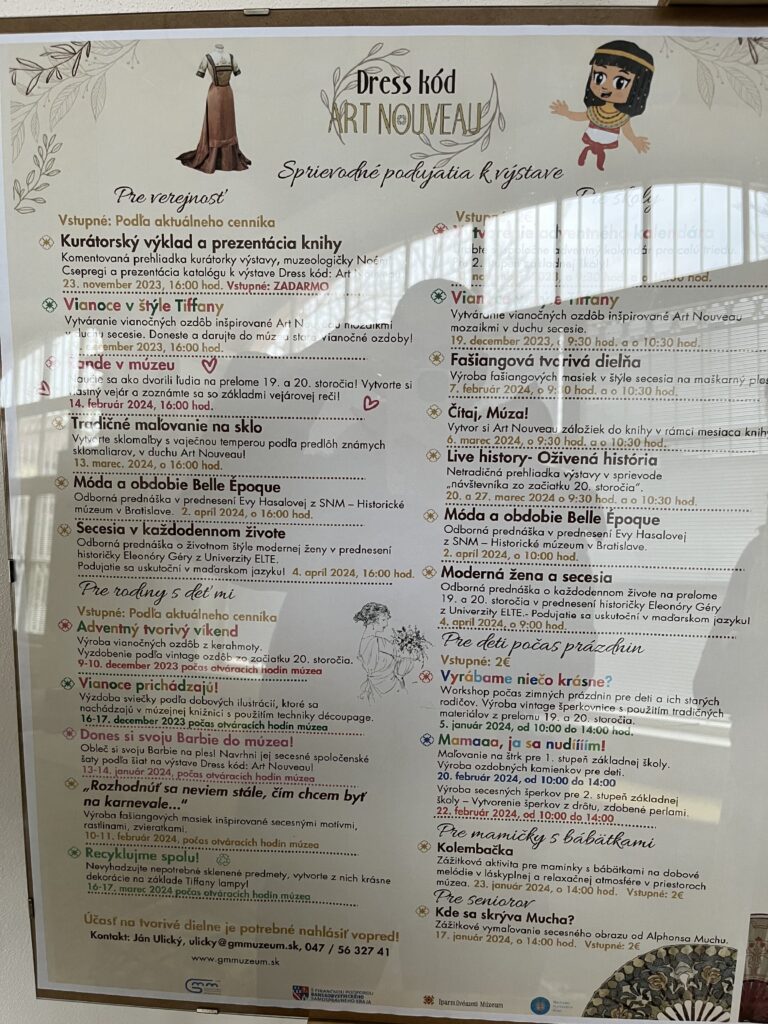 Dress kód
ART NOUVEAU
Sprievodné podujatia k výstave
Pre verejnosť
Vstupné: Podľa aktuálneho cenníka
Kurátorský výklad a prezentácia knihy
Komentovaná prehliadka kurátorky výstavy, muzeologičky Noémi
Csepregi a prezentácia katalógu k výstave Dress kód: Art
23. november 2023, 16:00 hod. Vstupné: ZADARMO
Vianoce v štýle Tiffany
Vytváranie vianočných ozdôb inšpirované Art mozaikmi
duchu secesie. Doneste a darujte do múzea staré vianočné ozdoby!
2023, 16:00 hod.
Rande v múzeu
sa ako dvorili ľudia na prelome 19. a 20. storočia! Vytvorte si
vlastný vejár a zoznámte sa so základmi vejárovej reči!
14. február 2024, 16:00 hod.
Tradičné maľovanie na sklo
Vytvorte sklomaľby s vaječnou temperou podľa predlôh známych
sklomaliarov, v duchu Art Nouveau!
13. marec, 2024, o 16:00 hod.
Móda a obdobie Belle Époque
Odborná prednáška v prednesení Evy Hasalovej z SNM – Historické
múzeum v Bratislave. 2. apríl 2024, o 16:00 hod.
Secesia v každodennom živote
Odborná prednáška o životnom štýle modernej ženy v prednesení
historičky Eleonóry Géry z Univerzity ELTE.
Podujatie sa uskutoční v maďarskom jazyku! 4. apríl 2024, 16:00 hod.
Pre rodiny s deťmi
Vstupné: Podľa aktuálneho cenníka
Adventný tvorivý víkend
Výroba vianočných ozdôb z kerahmoty.
Vyzdobenie podľa vintage ozdôb zo začiatku 20. storočia.
9-10. december 2023 počas otváracích hodín múzea
Vianoce prichádzajú!
Výzdoba sviečky podľa dobových ilustrácií, ktoré sa
nachádzajú v múzejnej knižnici s použitím techniky découpage.
16-17. december 2023 počas otváracích hodín múzea
Dones si svoju Barbie do múzea!
Obleč si svoju Barbie na ples! Navrhni jej secesné spoločenské
šaty podľa šiat na výstave Dress kód: Art Nouveau!
13-14. január 2024, počas otváracích hodín múzea
„Rozhodnúť sa neviem stále, čím chcem byť
na karnevale...“
Výroba fašiangových masiek inšpirované secesnými motívmi,
rastlinami, zvieratkami.
10-11. február 2024, počas otváracích hodín múzea
Recyklujme spolu!
Nevyhadzujte nepotrebné sklenené predmety, vytvorte z nich krásne
dekorácie na základe Tiffany lampy!
16-17. marec 2024 počas otváracích hodín múzea
Účasť na tvorivé dielne je potrebné nahlásiť vopred!
Kontakt: Ján Ulický, ulicky@gmmuzeum.sk, 047 / 56 327 41
www.gmmuzeum.sk
Pre školy
adventného kalendára
adventný kalendár pre celú triedu
Vianoce v štýle Tiffany
Vytváranie vianočných ozdôb inšpirované Art Nouveau
mozaikmi v duchu secesie.
19. december 2023, o 9:30 hod. a o 10:30 hod.
Fašiangová tvorivá dielňa
Výroba fašiangových masiek v štýle secesia na maškarný ples
7. február 2024, o 9:30 hod. a o 10:30 hod.
Čítaj, Múza!
Vytvor si Art Nouveau záložiek do knihy v rámci mesiaca knihy
6. marec 2024, o 9:30 hod. a o 10:30 hod.
Live history- Oživená história
Netradičná prehliadka výstavy v sprievode
„návštevníka zo začiatku 20. storočia“.
20. a 27. marec 2024 o 9:30 hod. a o 10:30 hod.
Móda a obdobie Belle Époque
Odborná prednáška v prednesení Evy Hasalovej
z SNM – Historické múzeum v Bratislave.
2. apríl 2024, o 10:00 hod.
Moderná žena a secesia
Odborná prednáška o každodennom živote na prelome
19. a 20. storočia v prednesení historičky Eleonóry Géry
z Univerzity ELTE.- Podujatie sa uskutoční v maďarskom jazyku!
4. apríl 2024, o 9:00 hod.
Pre deti počas prázdnin
Vstupné: 2€
Vyrábame niečo krásne?
Workshop počas zimných prázdnin pre deti a ich starých
rodičov. Výroba vintage šperkovnice s použitím tradičných
materiálov z prelomu 19. a 20. storočia.
5. január 2024, od 10:00 do 14:00 hod.
Mamaaa, ja sa nudíííím!
Maľovanie na štrk pre 1. stupeň základnej školy.
Výroba ozdobných kamienkov pre deti.
20. február 2024, od 10:00 do 14:00
Výroba secesných šperkov pre 2. stupeň základnej
školy – Vytvorenie šperkov z drôtu, zdobené perlami.
22. február 2024, od 10:00 do 14:00
Pre mamičky s bábätkami
Kolembačka
Zážitková aktivita pre maminky s bábätkami na dobové
melódie v láskyplnej a relaxačnej atmosfére v priestoroch
múzea. 23. január 2024, o 14:00 hod. Vstupné: 2€
Pre seniorov
Kde sa skrýva Mucha?
Zážitkové vymaľovanie secesného obrazu od Alphonsa Muchu.
17. január 2024, o 14:00 hod. Vstupné: 2€
S FINANČNOU PODPOROU
BANSKOBYSTRICKÉHO
SAMOSPRÁVNEHO KRAJA
Iparművészeti Múzeum